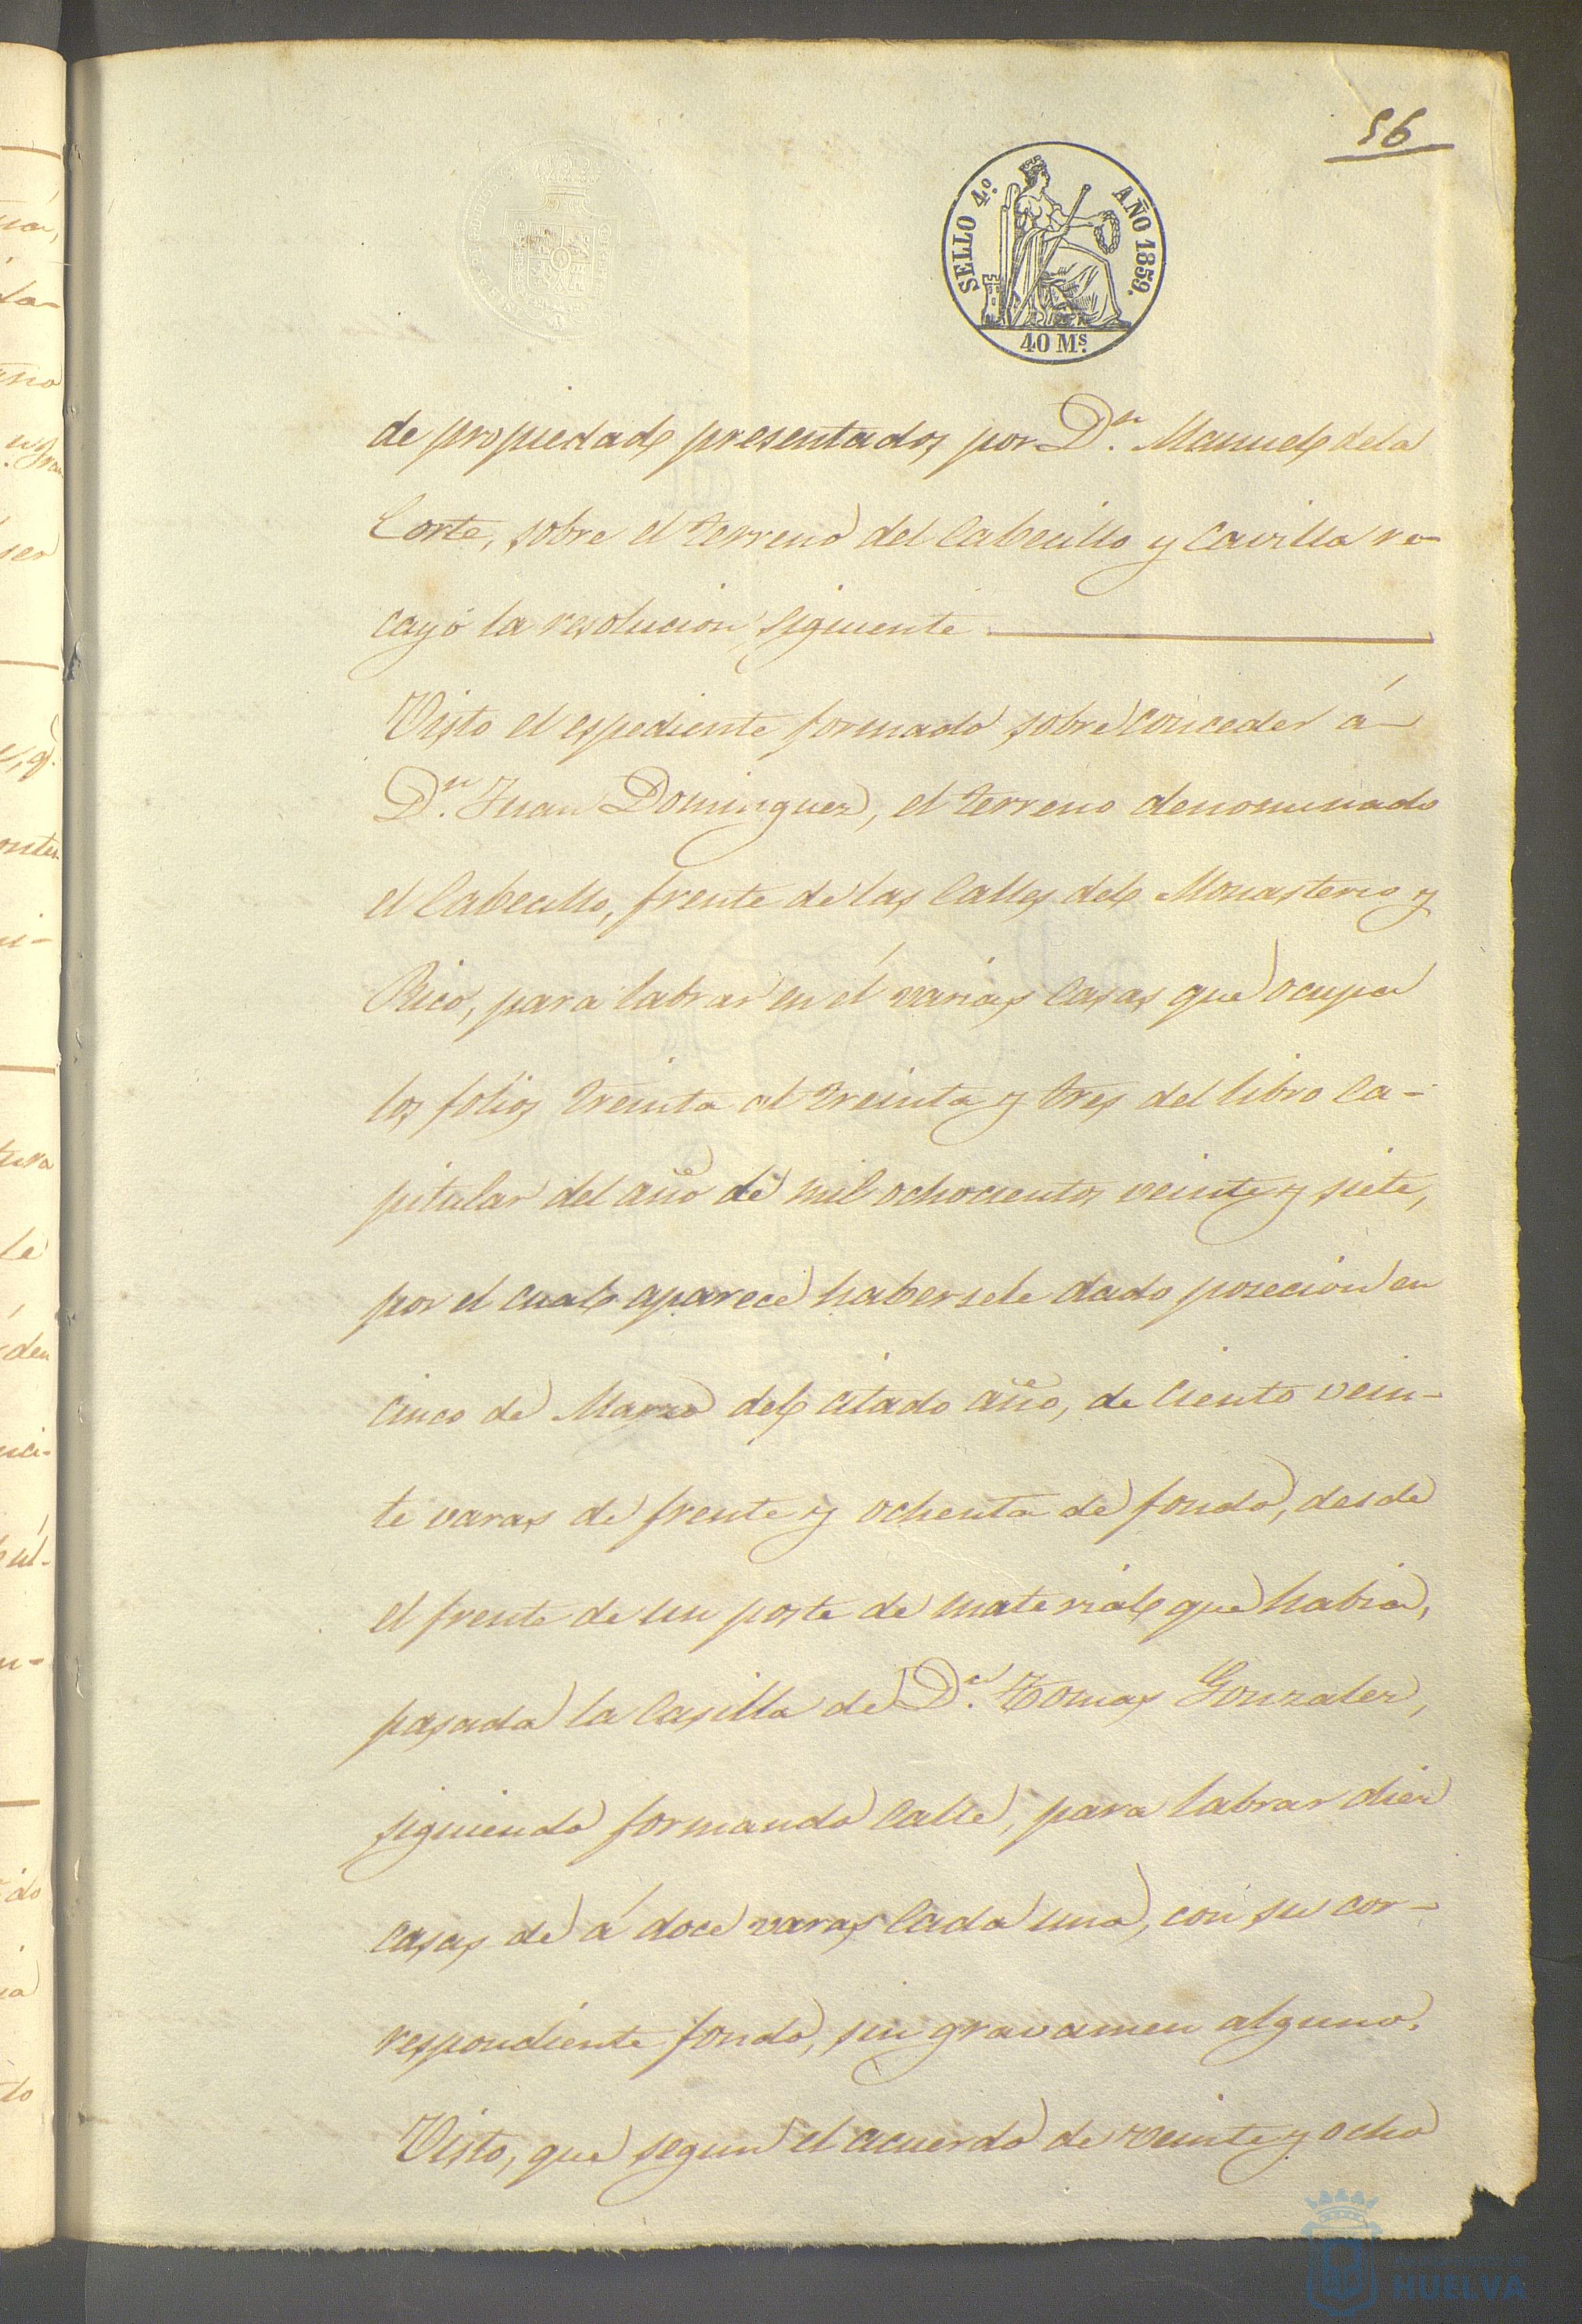 56
SELLO 4.º AÑO 1859.
40 Ms.
de propiedad presentados por Dn. Manuel de la
Corte, sobre el terreno del Cabecillo y Cavilla re-
cayó la resolucion siguiente
Visto el espediente formado sobre conceder á
Dn. Juan Dominguez, el terreno denominado
el Cabecillo, frente de las Calles del Monasterio y
Rico, para labrar en él varias Casas que ocupa
los folios treinta al treinta y tres del libro Ca-
pitular del año de mil ochocientos veinte y siete,
por el cual aparece habersele dado posecion en
cinco de Marzo del citado año, de Ciento vein-
te varas de frente y ochenta de fondo, desde
el frente de un poste de material que habia,
pasada la Casilla de Dn. Tomas Gonzalez,
siguiendo formando Calle, para labrar diez
casas de á doce varas Cada una, con su cor-
respondiente fondo, sin gravamen alguno.
Visto, que segun el acuerdo de veinte y ocho
HUELVA